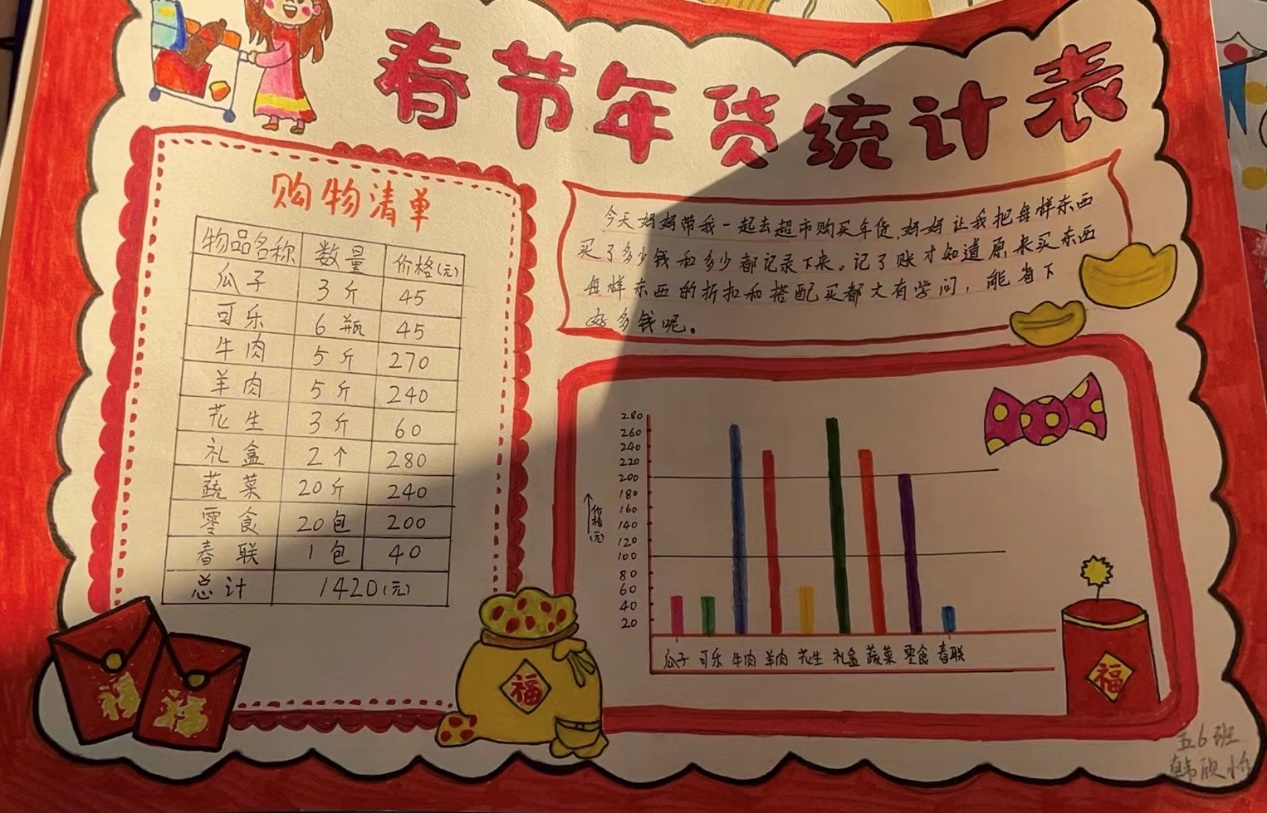 春节年货统计表
购物清单
物品名称 数量 价格(元)
瓜子 3斤 45
可乐 6瓶 45
牛肉 5斤 270
羊肉 5斤 240
花生 3斤 60
礼盒 2个 280
蔬菜 20斤 240
零食 20包 200
春联 1包 40
总计 1420(元)
今天妈妈带我一起去超市购买年货,妈妈让我把每样东西
买了多少钱和多少都记录下来。记了账才知道原来买东西
每样东西的折扣和搭配买都大有学问,能省下
好多钱呢。
280
260
240
220
200
180
160
140
120
100
80
60
40
20
价格(元)
瓜子 可乐 牛肉 羊肉 花生 礼盒 蔬菜 零食 春联
福
福
福
福
五6班
韩欣怡